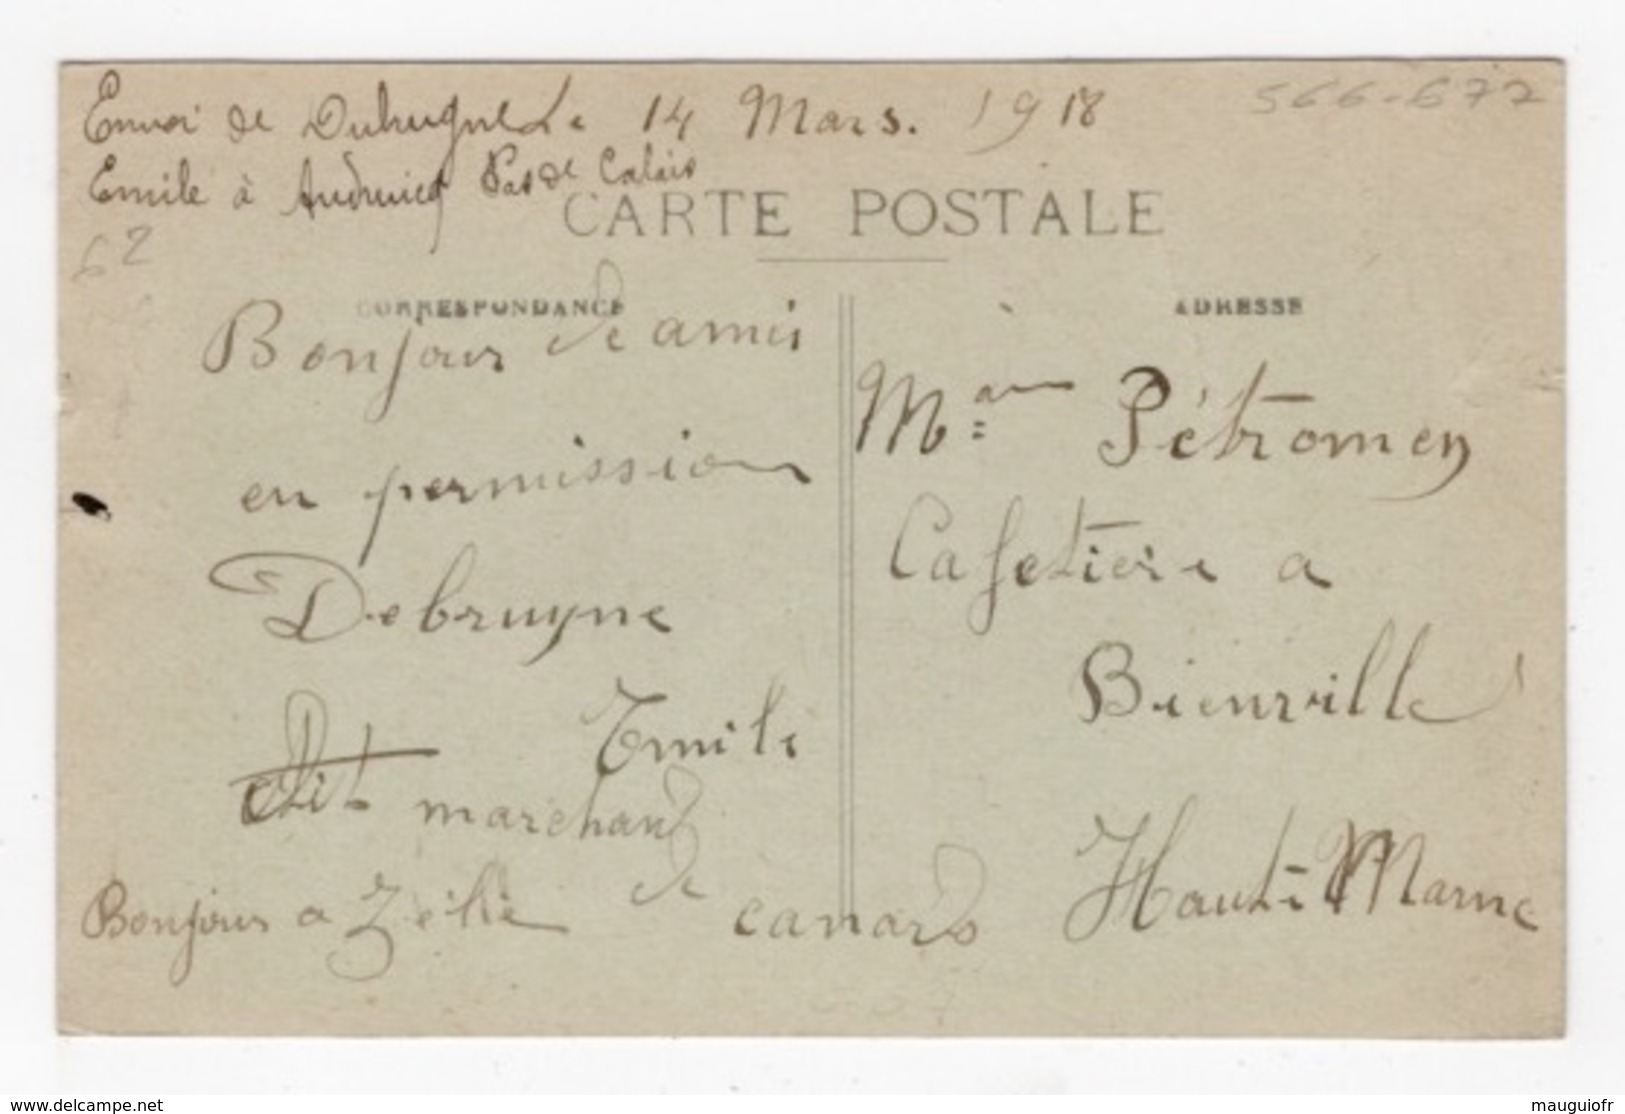 Envoi de Dubruyne Le 14 Mars. 1918
566-677
Emile à Audruicq Pas de Calais
62
CARTE POSTALE
CORRESPONDANCE
Bonjour de amis
en permission
Debruyne
Emile
dit marchand
de canards
Bonjour a Zélie
ADRESSE
à
Mam Pétromen
Cafetière a
Bienville
Haute Marne
www.delcampe.net
mauguiofr